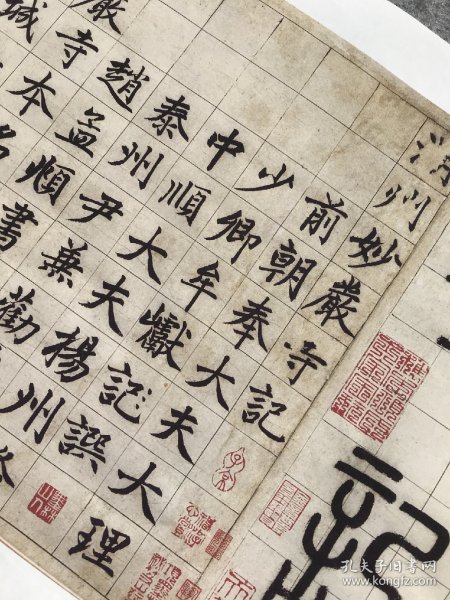 記
湖州妙嚴寺記
前朝奉大夫大理
少卿牟巘記譔
中順大夫楊州
泰州尹兼勸
趙孟頫書
嚴寺本名
城
孔夫子旧书网
www.kongfz.com